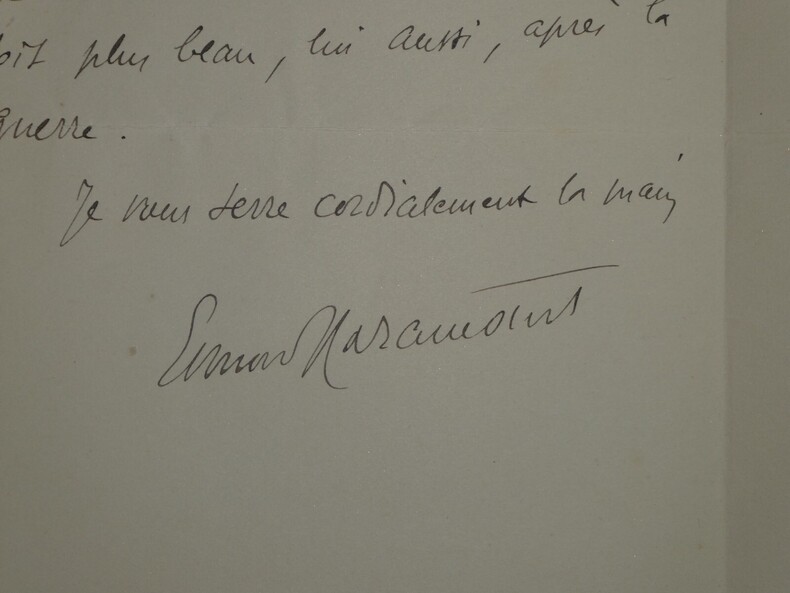 soit plus beau, lui aussi, après la
guerre.
Je vous serre cordialement la main
Edmond Haraucourt